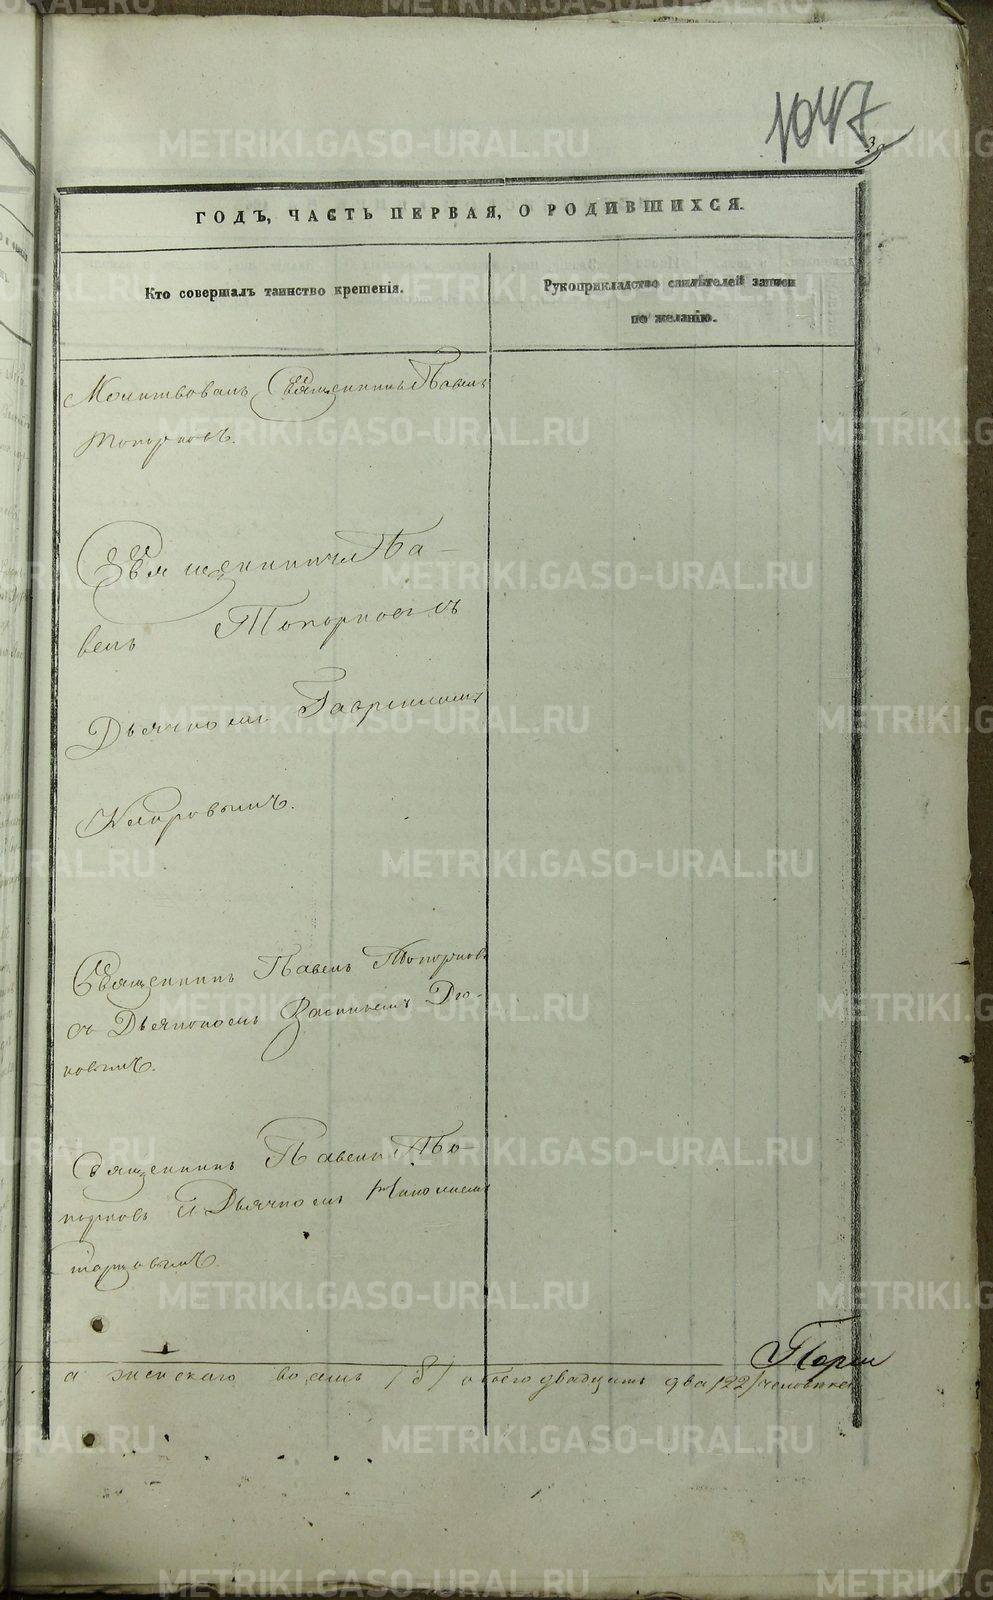 1047
39
ГОДЪ, ЧАСТЬ ПЕРВАЯ, О РОДИВШИХСЯ.
Кто совершалъ таинство крещенія.
Рукоприкладство свидѣтелей записи
по желанію.
Молитвовалъ Священникъ Павелъ
Топорковъ.
Священникъ Па-
велъ Топорковъ съ
Дьячкомъ Гавріиломъ
Кляровымъ.
Священникъ Павелъ Топорковъ
съ Дьякономъ Васильемъ
Священникъ Павелъ То-
порковъ и Дьячкомъ Николаемъ
а женскаго восемь /8/ обоего двадцать два /22/ человѣка
METRIKI.GASO-URAL.RU